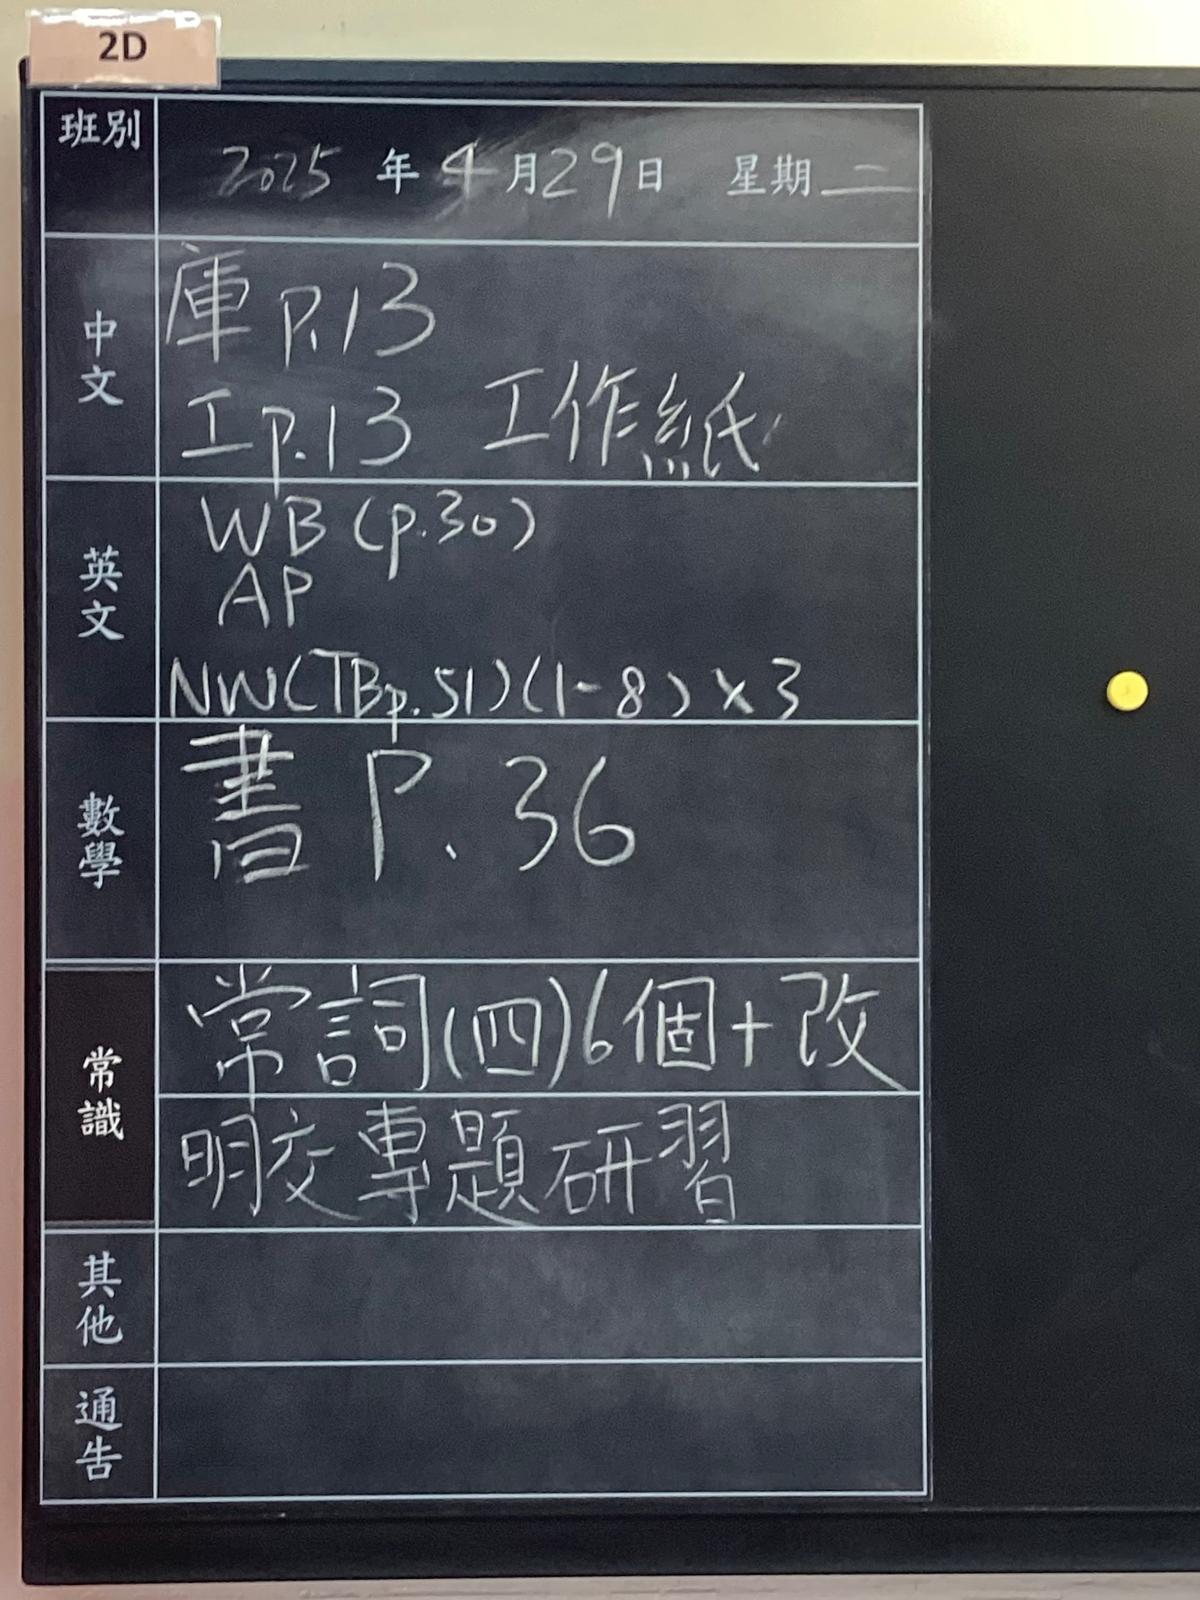 2D
班別
2025 年 4 月 29 日 星期二
中文
庫 P.13
工 P.13 工作紙
英文
WB (p.30)
AP
NW(TBp.51)(1-8)×3
數學
書 P. 36
常識
常詞(四)6個+改
明交專題研習
其他
通告